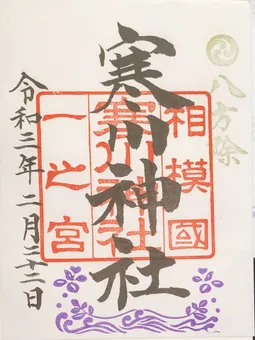 八方除
相模國
寒川神社
寒川神社
一之宮
令和三年二月二十二日